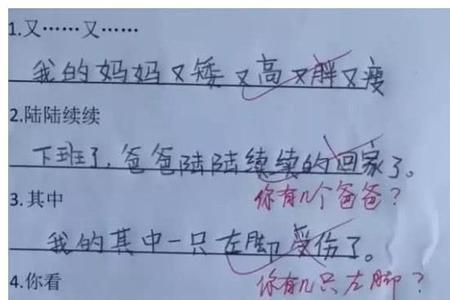 1.又……又……
我的妈妈又矮又高又胖又瘦
2.陆陆续续
下班了,爸爸陆陆续续的回家了。
你有几个爸爸?
3.其中
我的其中一只左脚受伤了。
你有几只左脚?
4.你看